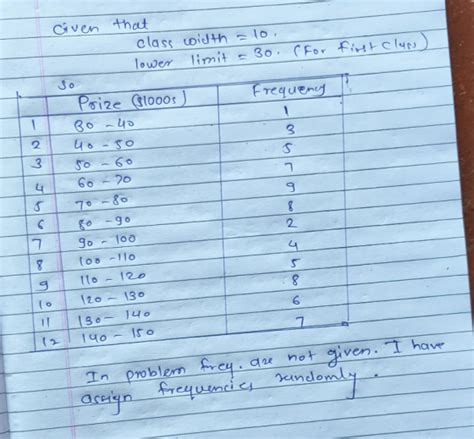 Given that
class width = 10.
lower limit = 30. (For first class)
So
Prize ($1000s) Frequency
1 30 - 40 1
2 40 - 50 3
3 50 - 60 5
4 60 - 70 7
5 70 - 80 9
6 80 - 90 8
7 90 - 100 2
8 100 - 110 4
9 110 - 120 5
10 120 - 130 8
11 130 - 140 6
12 140 - 150 7
In problem freq. are not given. I have
assign frequencies randomly.